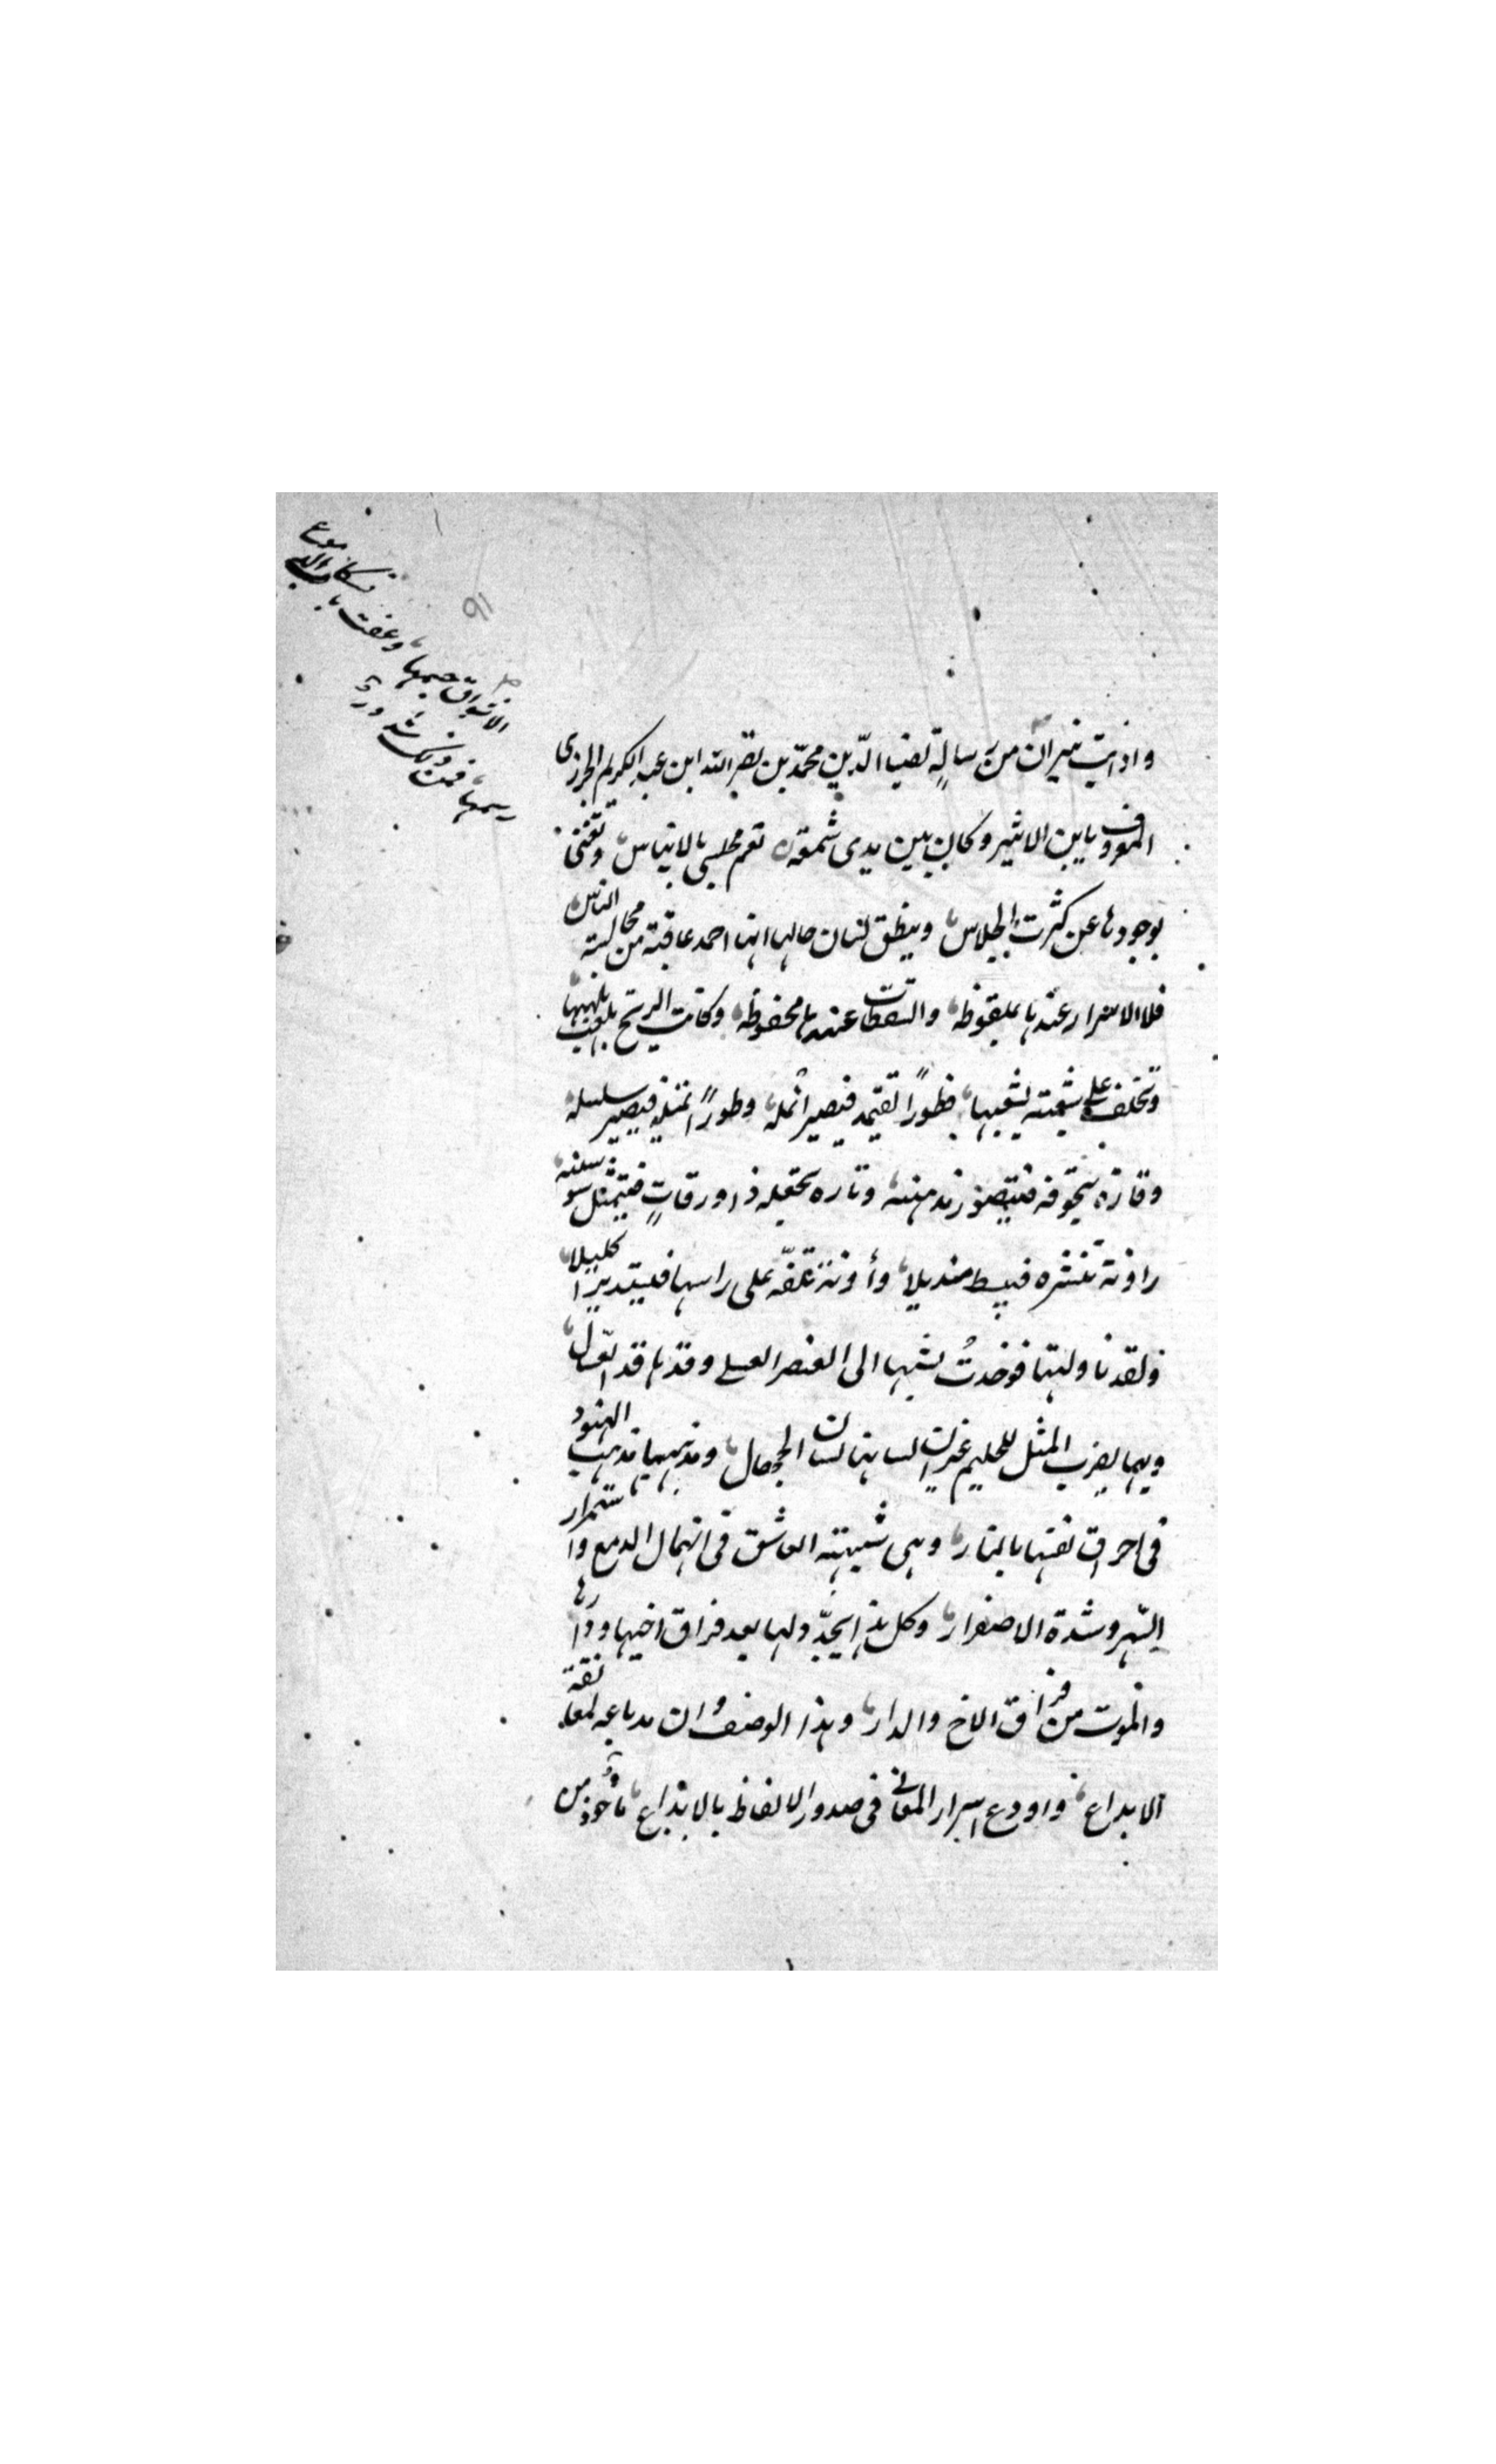 واذابت نيران من رسالة لضيا الدّين محمّد بن نصر الله ابن عبد الكريم الجزرى
المعروف بابن الاثير وكان بين يدى شمعة تعم مجلسى بالايناس وتغنى
بوجودها عن كثرت الجلاس وينطق لسان حالها انها احمد عاقبة من مجالسة الناس
فلا الاسرار عندها بملفوظة والسقطات عندها بمحفوظة وكانت الريح تلعب بلهبها
وتختلف على شعبته لشعبها فطورًا تقيمه فيصير انمله وطورًا تميله فيصير سلسله
وتارة تجوفه فيتصور مدهنه وتاره تجعله ذا ورقاتٍ فيتمثل سوسنه
واونة تنشره فيبسط منديلا وأونة تلفّه على راسها فيستدير اكليلا
ولقد تاولتها فوجدتُ نسبها الى العنصر العسلى وقدها قد العسّال
وبها يضرب المثل للحليم غير ان لسانها لسان الجهال ومذهبها مذهب الهنود
فى احراق نفسها بالنار وهى شبيهة العاشق فى انهمال الدمع واستمرار
السّهر وشدة الاصفرار وكل هذا يجدّد لها بعد فراق اخيها ودارها
والموت من فراق الاخ والدار وهذا الوصف وان
الابداع واودع اسرار المعانى فى صدور الالفاظ بالابداع ماخوذ من
91
الاشواق جسمها وعفت
رسمها فمن ذلك